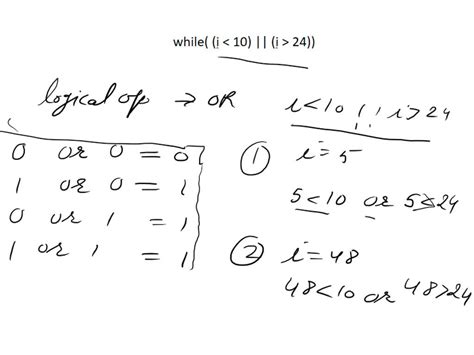 while( (i < 10) || (i > 24))
logical op → OR
i<10 || i>24
0 or 0 = 0
1 or 0 = 1
0 or 1 = 1
1 or 1 = 1
① i=5
5<10 or 5 24
② i=48
48<10 or 48>24